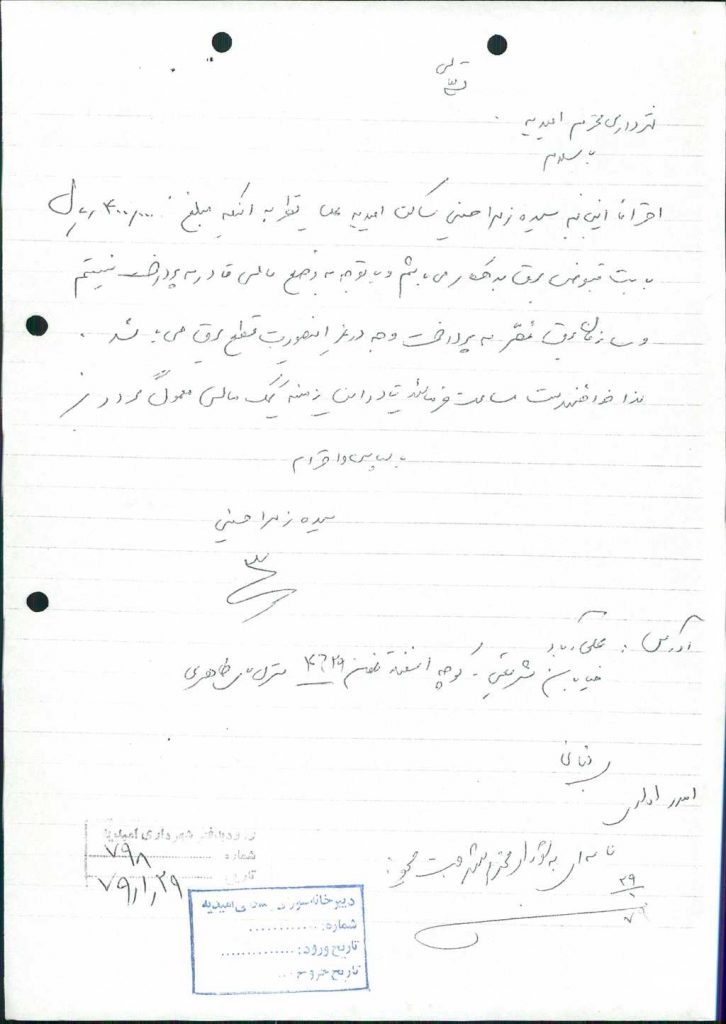 بسمه تعالی
شهرداری محترم امیدیه
با سلام
احتراما اینجانبه سیده زهرا حسینی ساکن امیدیه نظر به اینکه مبلغ ۴۰۰/۰۰۰ ریال
بابت قبوض برق بدهکار می باشم و با توجه به وضع مالی قادر به پرداخت نیستم
و سازمان برق مصر به پرداخت وجه در غیر اینصورت قطع برق می باشد .
لذا خواهشمند است مساعدت فرمائید تا در این زمینه کمک مالی مبذول گردد
با سپاس و احترام
سیده زهرا حسینی
آدرس :
خیابان شریعتی - کوچه تلفن ۴۶۲۹ منزل طاهری
امور اداری
نامه ای به
ورود به دفتر شهرداری امیدیه
شماره ۷۹۸
تاریخ ۷۹/۱/۲۹
۲۹/۱/۷۹
دبیرخانه شورای اسلامی امیدیه
شماره: ............
تاریخ ورود: ............
تاریخ خروج ...